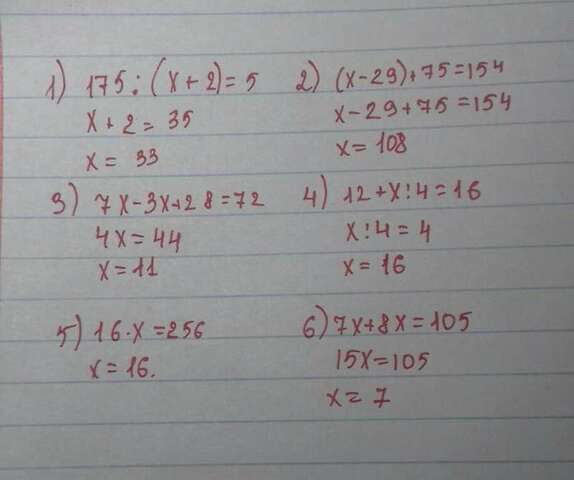 1) 175:(x+2)=5
x+2=35
x=33
2) (x-29)+75=154
x-29+75=154
x=108
3) 7x-3x+28=72
4x=44
x=11
4) 12+x:4=16
x:4=4
x=16
5) 16·x=256
x=16.
6) 7x+8x=105
15x=105
x=7